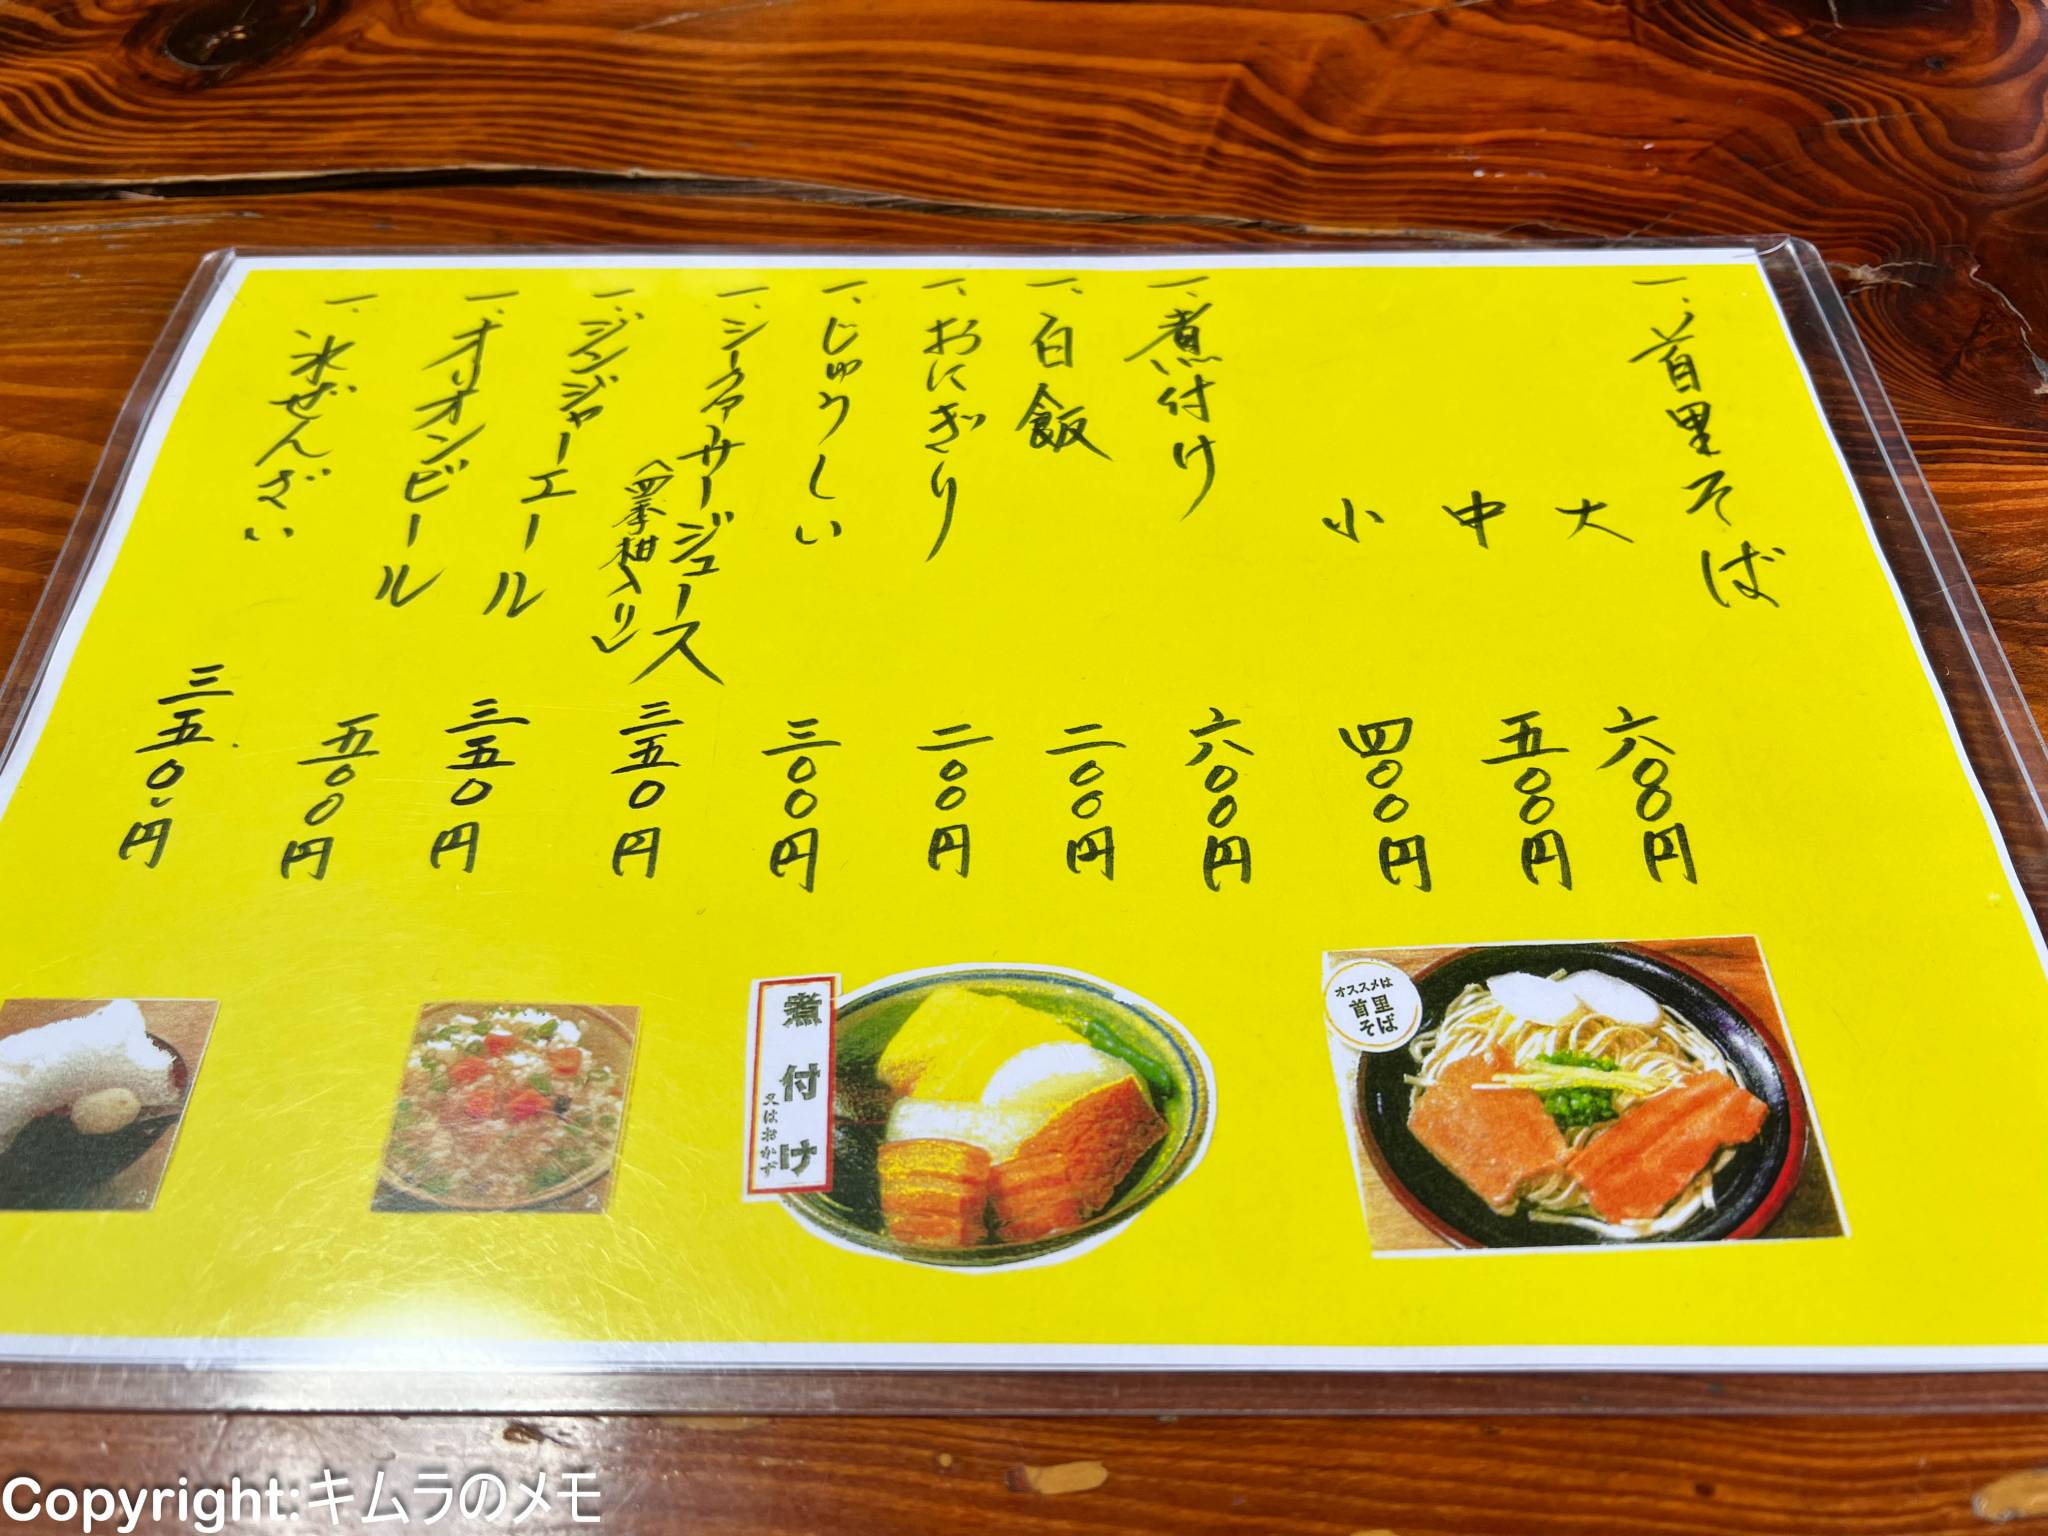 一、首里そば
大 六〇〇円
中 五〇〇円
小 四〇〇円
一、煮付け 六〇〇円
一、白飯 二〇〇円
一、おにぎり 二〇〇円
一、じゅうしい 三〇〇円
一、シークァーサージュース 三五〇円
(四季柑入り)
一、ジンジャーエール 三五〇円
一、オリオンビール 五〇〇円
一、氷ぜんざい 三五〇円
オススメは
首里
そば
煮付け
又はおかず
2
3
Copyright:キムラのメモ